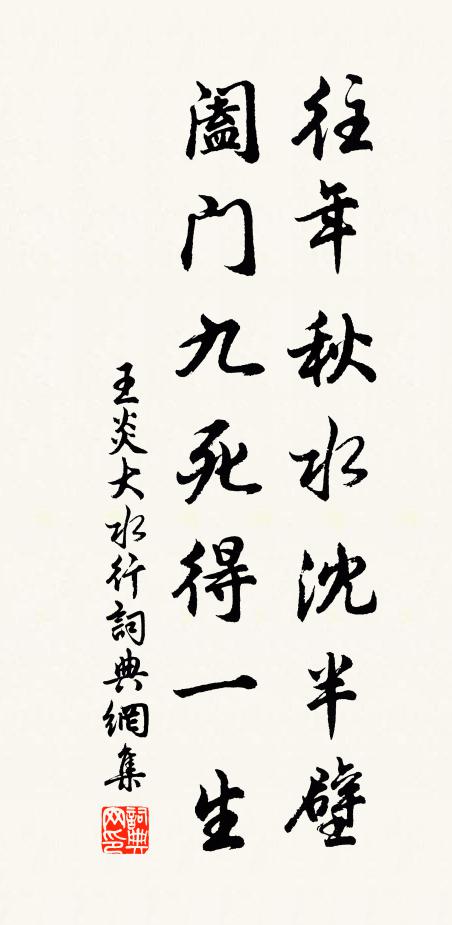 往年秋水沈半壁
阖门九死得一生
王炎大水行詞典網集
詞典网印